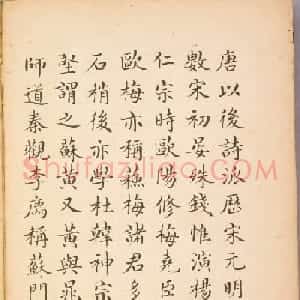 唐以後詩派歷宋元明
數宋初晏殊錢惟演楊
仁宗時歐陽修梅堯臣
歐梅亦稱蘇梅諸君多
石梢後亦學杜韓神宗
堅謂之蘇黃又黃與晁
師道秦觀李廌稱蘇門
Shufaziliao.com